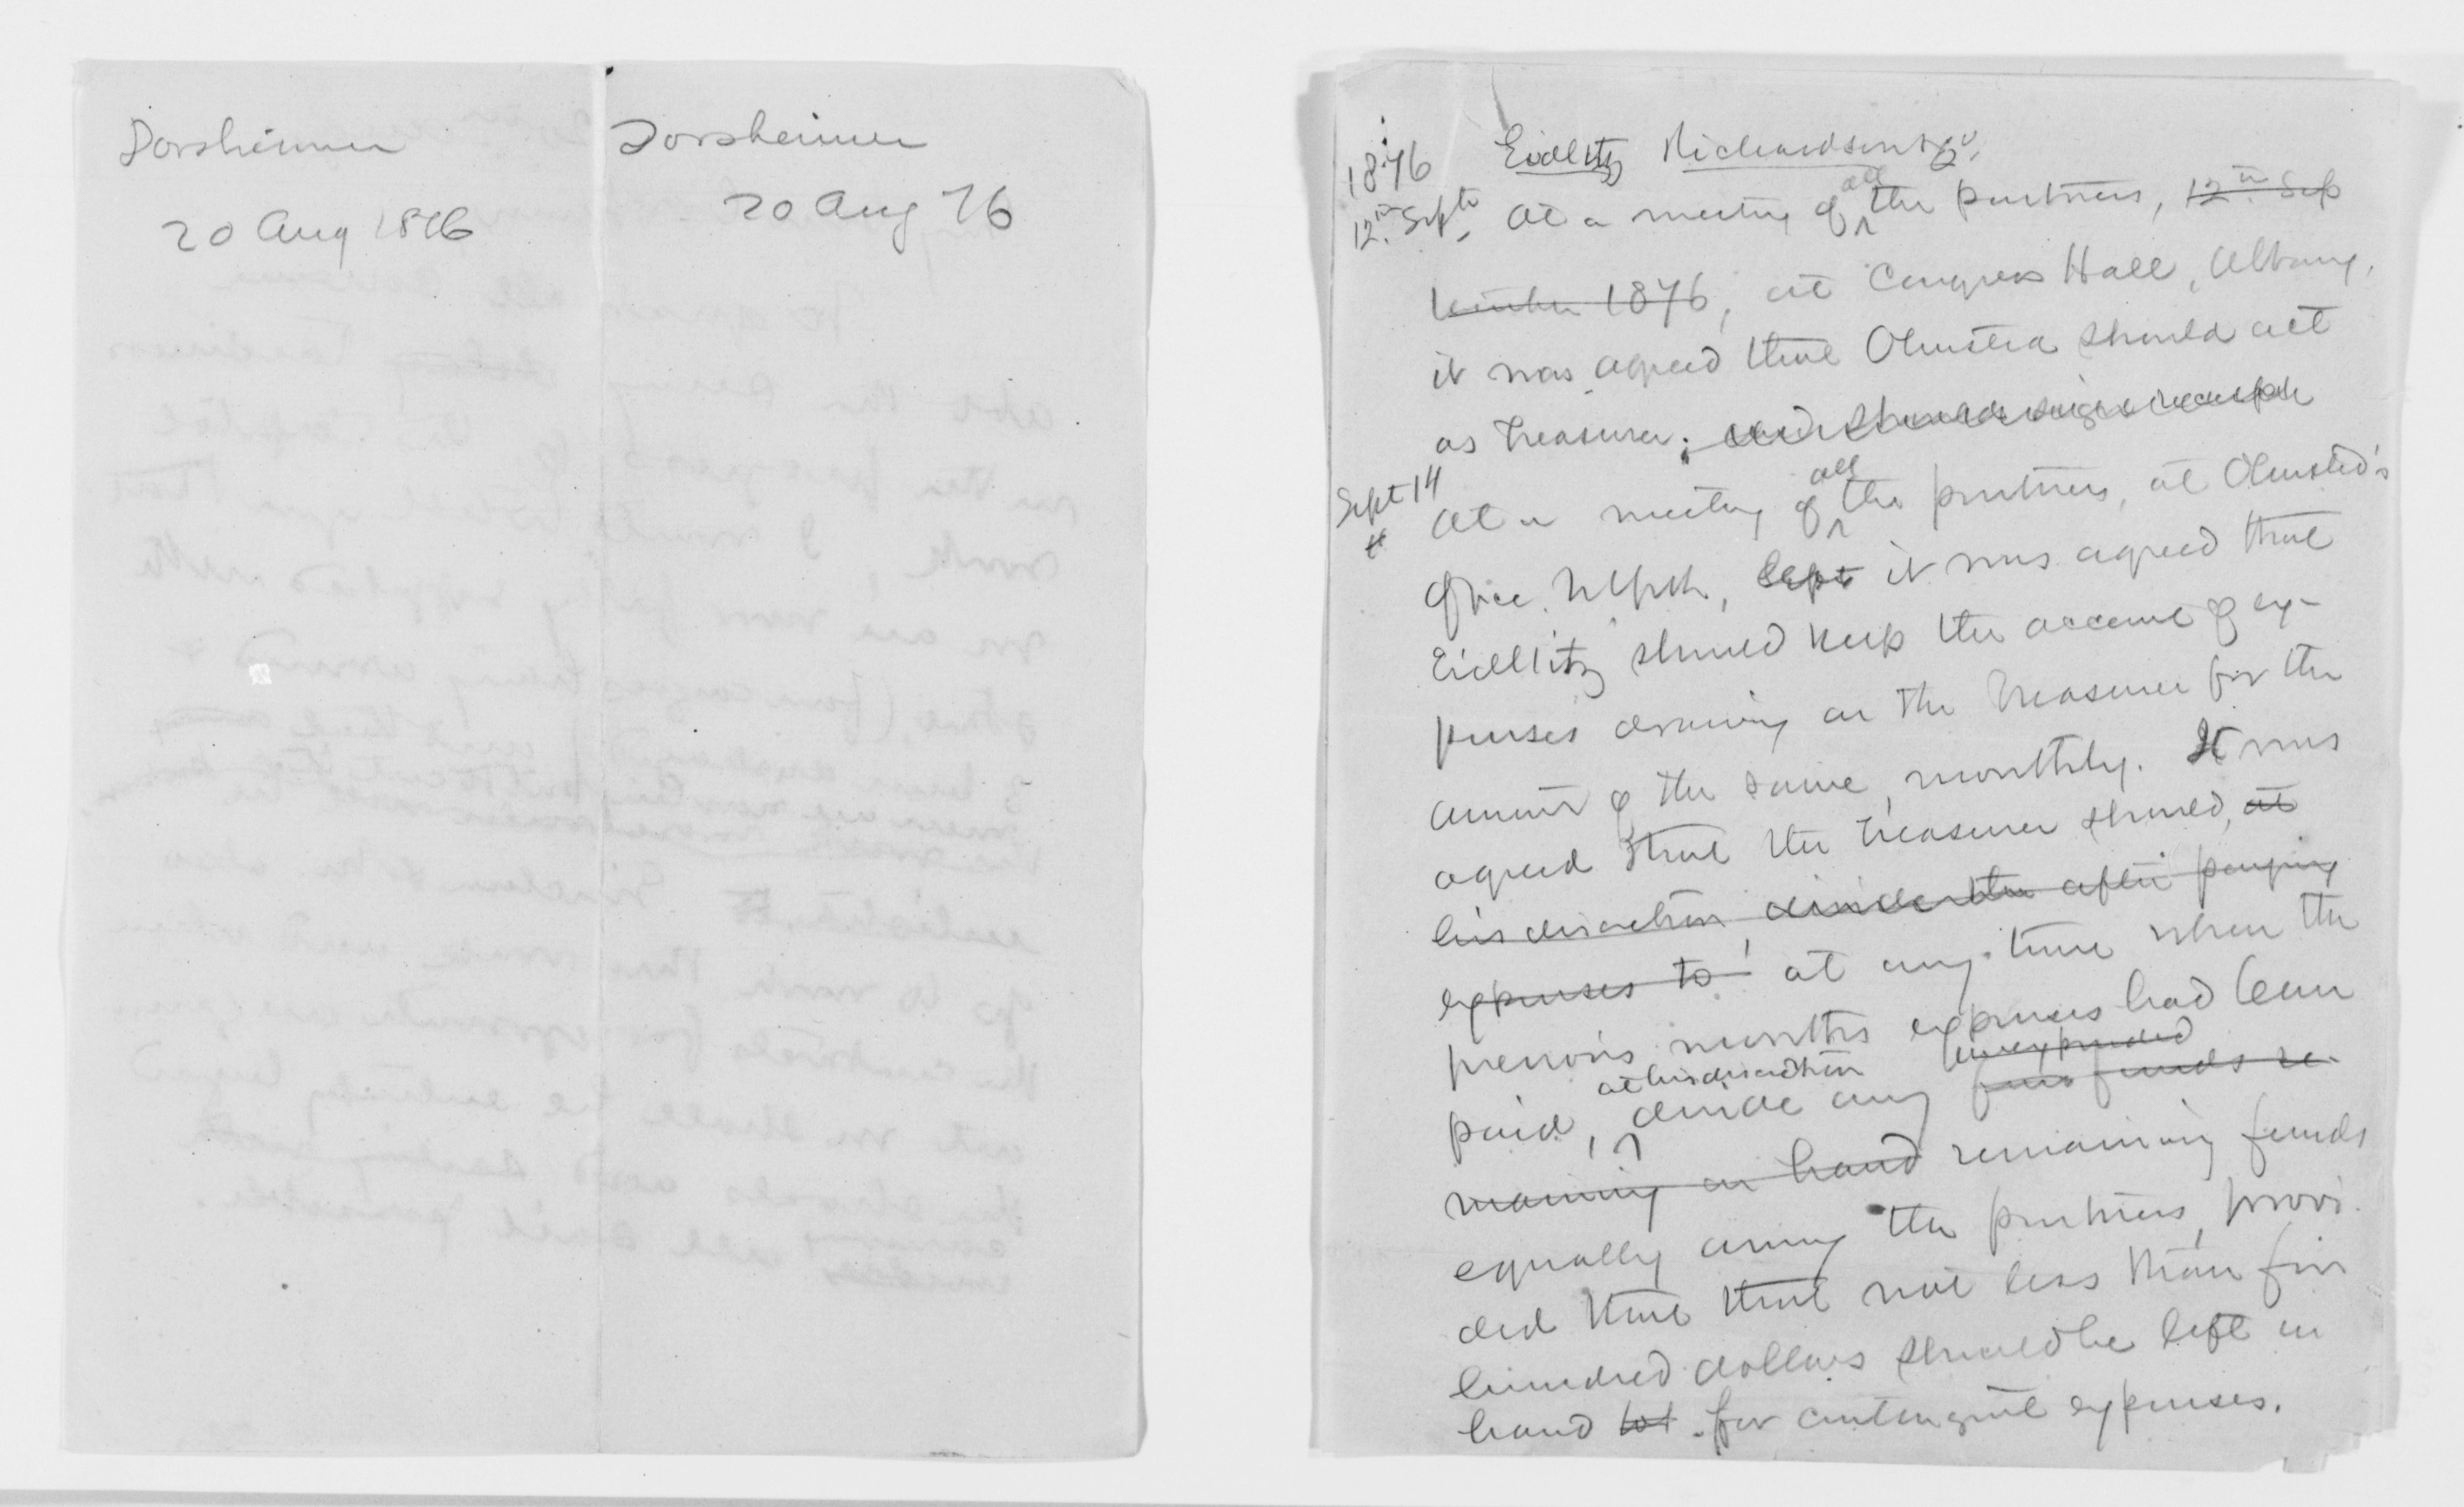 Dorsheimer
20 Aug 1876
Dorsheimer
20 Aug 76
1876
Eidlitz Richardson & Co.
12th Sept. At a meeting of all the partners, 12th Sep
tember 1876, at Congress Hall, Albany,
it was agreed that Olmsted should act
as Treasurer; and should sign receipts
Sept 14
At a meeting of all the partners, at Olmsted's
office, N York, Sept it was agreed that
Eidlitz should keep the account of ex-
penses drawing on the Treasurer for the
amount of the same, monthly. It was
agreed that the Treasurer should, at
his discretion, divide the after paying
expenses to at any time when the
previous months expenses had been
paid, at his discretion divide any unexpended funds re-
maining on hand remaining funds
equally among the partners, provi-
ded that that not less than five
hundred dollars should be left in
hand for contingent expenses.